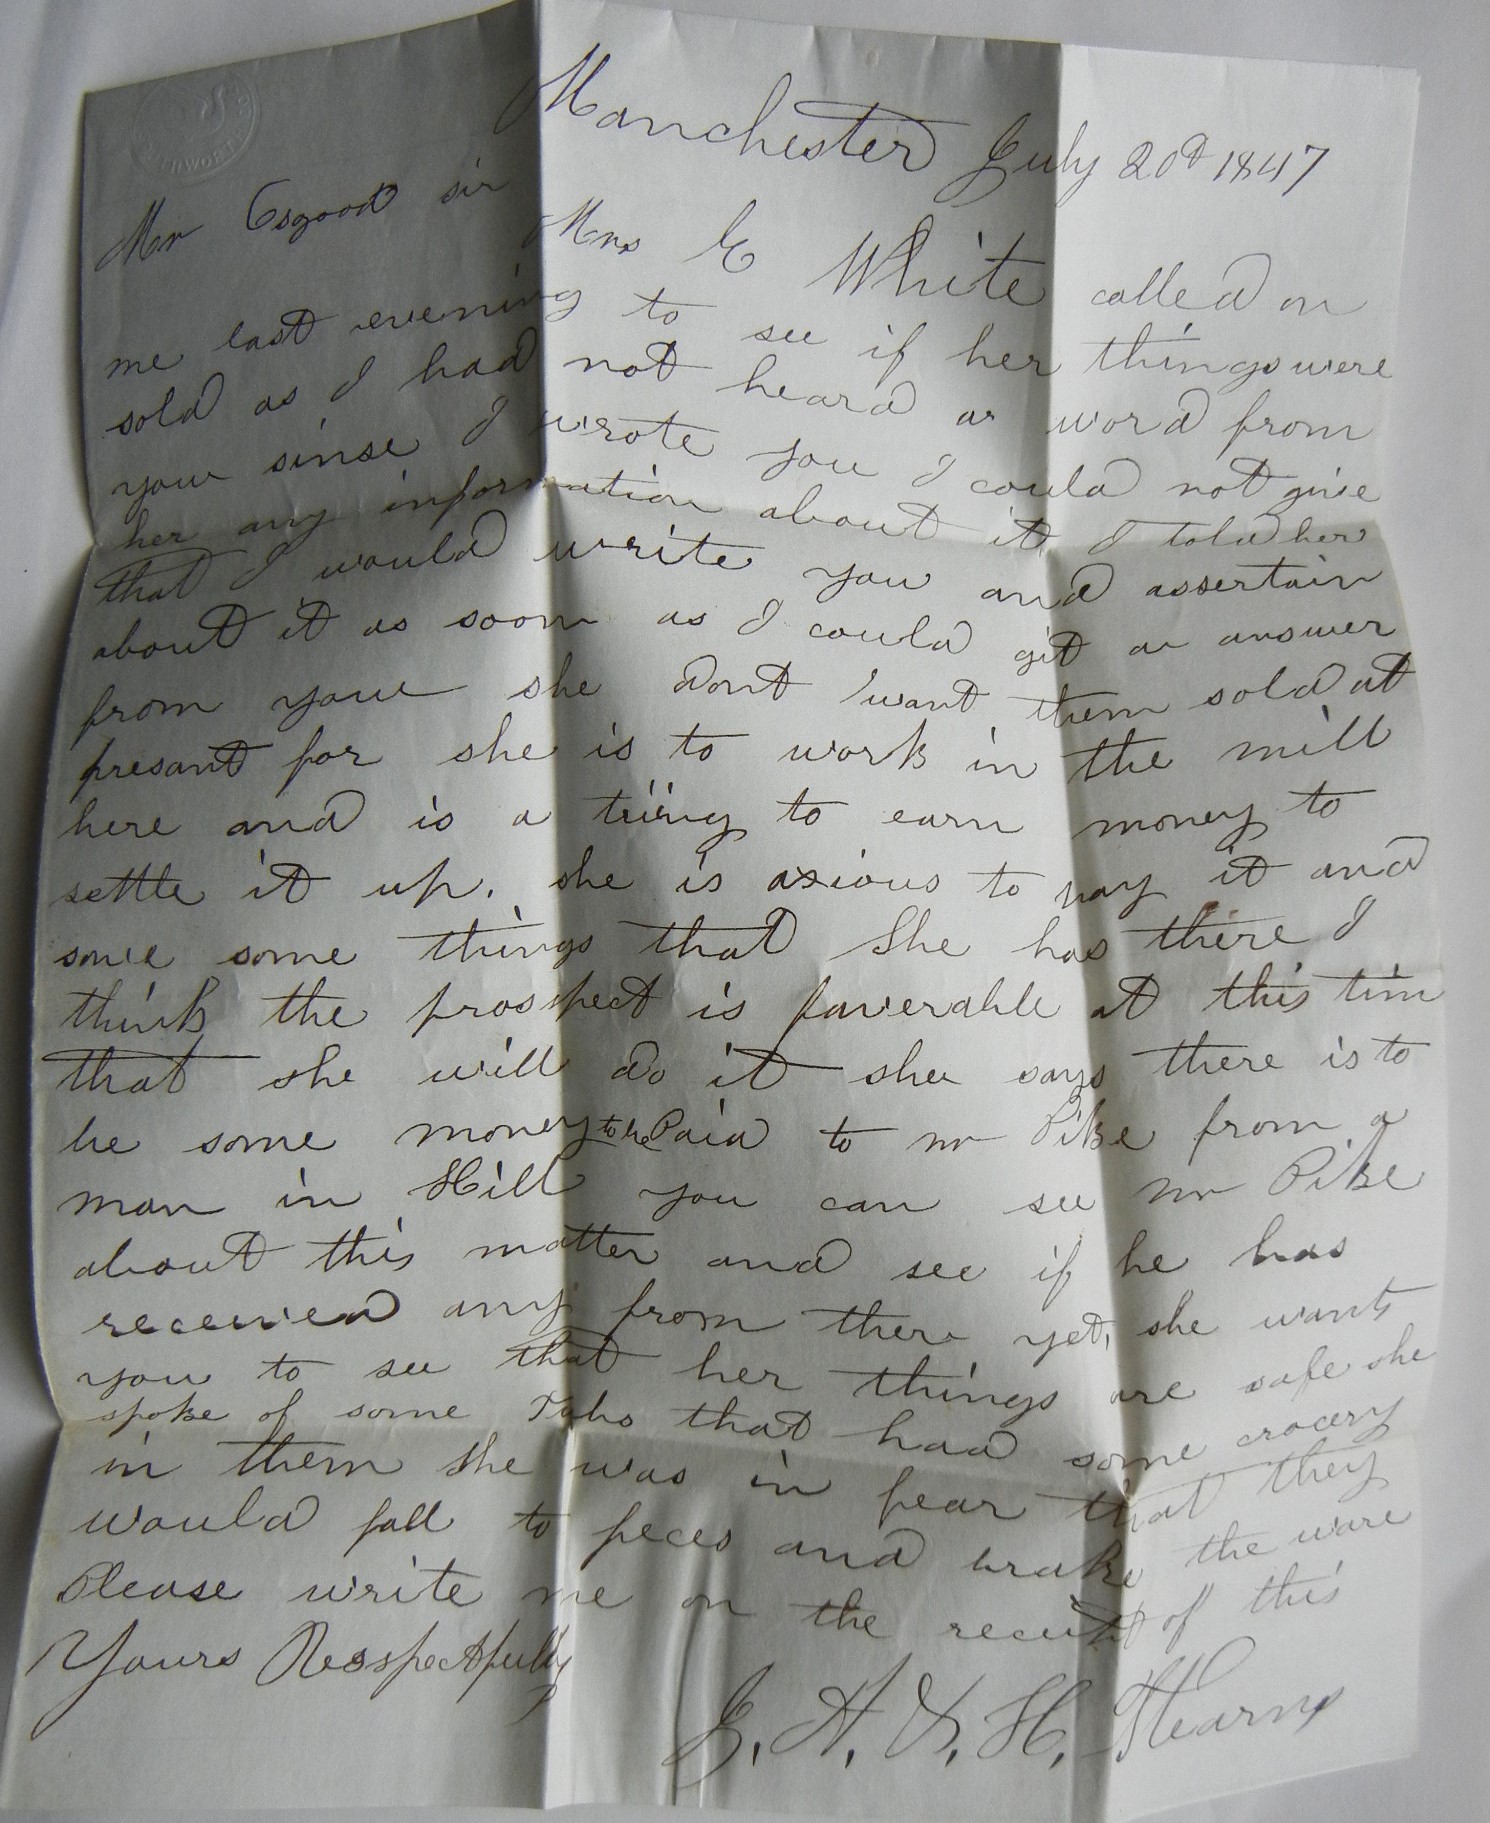 Manchester July 20th 1847
Mr Osgood sir
Mrs E White called on
me last evening to see if her things were
sold as I had not heard a word from
you sinse I wrote you I could not give
her any information about it I told her
that I would write you and assertain
about it as soon as I could git an answer
from you she dont want them sold at
presant for she is to work in the mill
here and is a triing to earn money to
settle it up. she is axious to pay it and
save some things that She has there I
think the prosspect is faverable at this tim
that she will do it she says there is to
be some money to be Paid to mr Pike from a
man in Hill you can see Mr Pike
about this matter and see if he has
received any from there yet, she wants
you to see that her things are safe she
spoke of some Tubs that had some crocery
in them She was in fear that they
would fall to peces and brake the ware
Please write me on the receipt of this
Yours Resspectfully
J. A. & H. Stearns